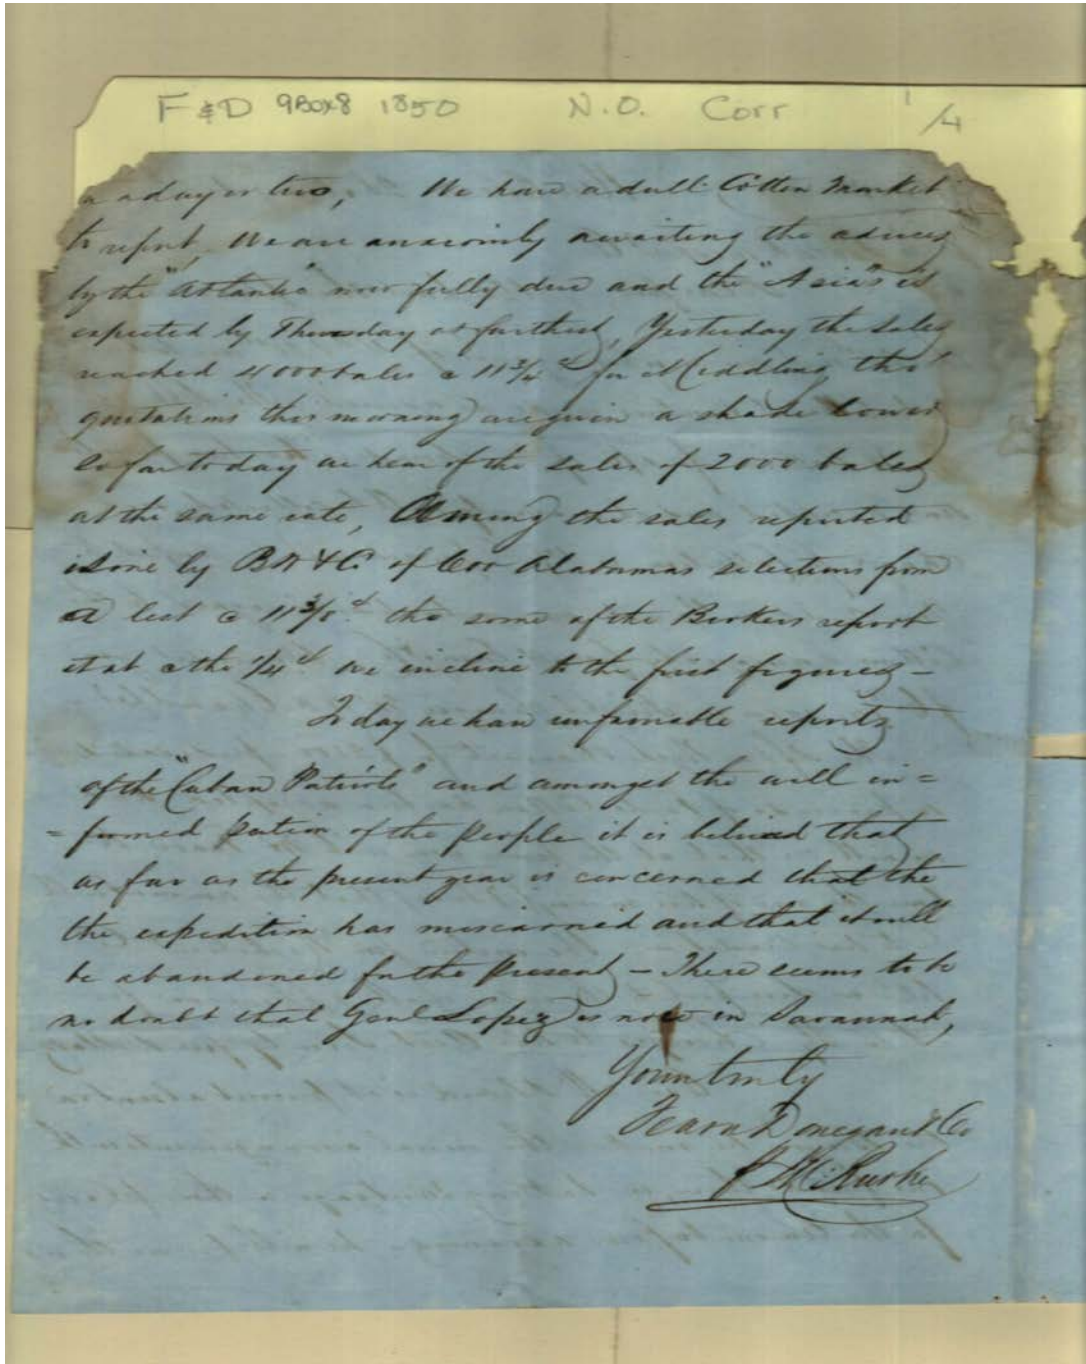 F & D 9Box8 1850 N.O. Corr 1/4
in a day or two, We have a dull Cotton Market
to report, We are anxiously awaiting the advices
by the "Atlantic" now fully due and the "Asia" is
expected by Thursday at furthest, Yesterday the sales
reached 4000 bales a 11 3/4 cts for Middling, tho'
quotations this morning are given a shade lower
so far today we hear of the sales of 2000 bales
at the same rate, Among the sales reported
is one by of Alabamas selections from
a list @ 11 tho some of the Brokers report
it at the 1/4 we incline to the first figures -
To day we have unfavorable reports
of the "Cuban Patriots" and amongst the well in=
=formed portion of the people it is believed that
as far as the present year is concerned that the
the expedition has miscarried and that it will
be abandoned for the present - There seems to be
no doubt that Genl Lopez is now in Savannah,
Yours truly
Fearn Donegan & Co